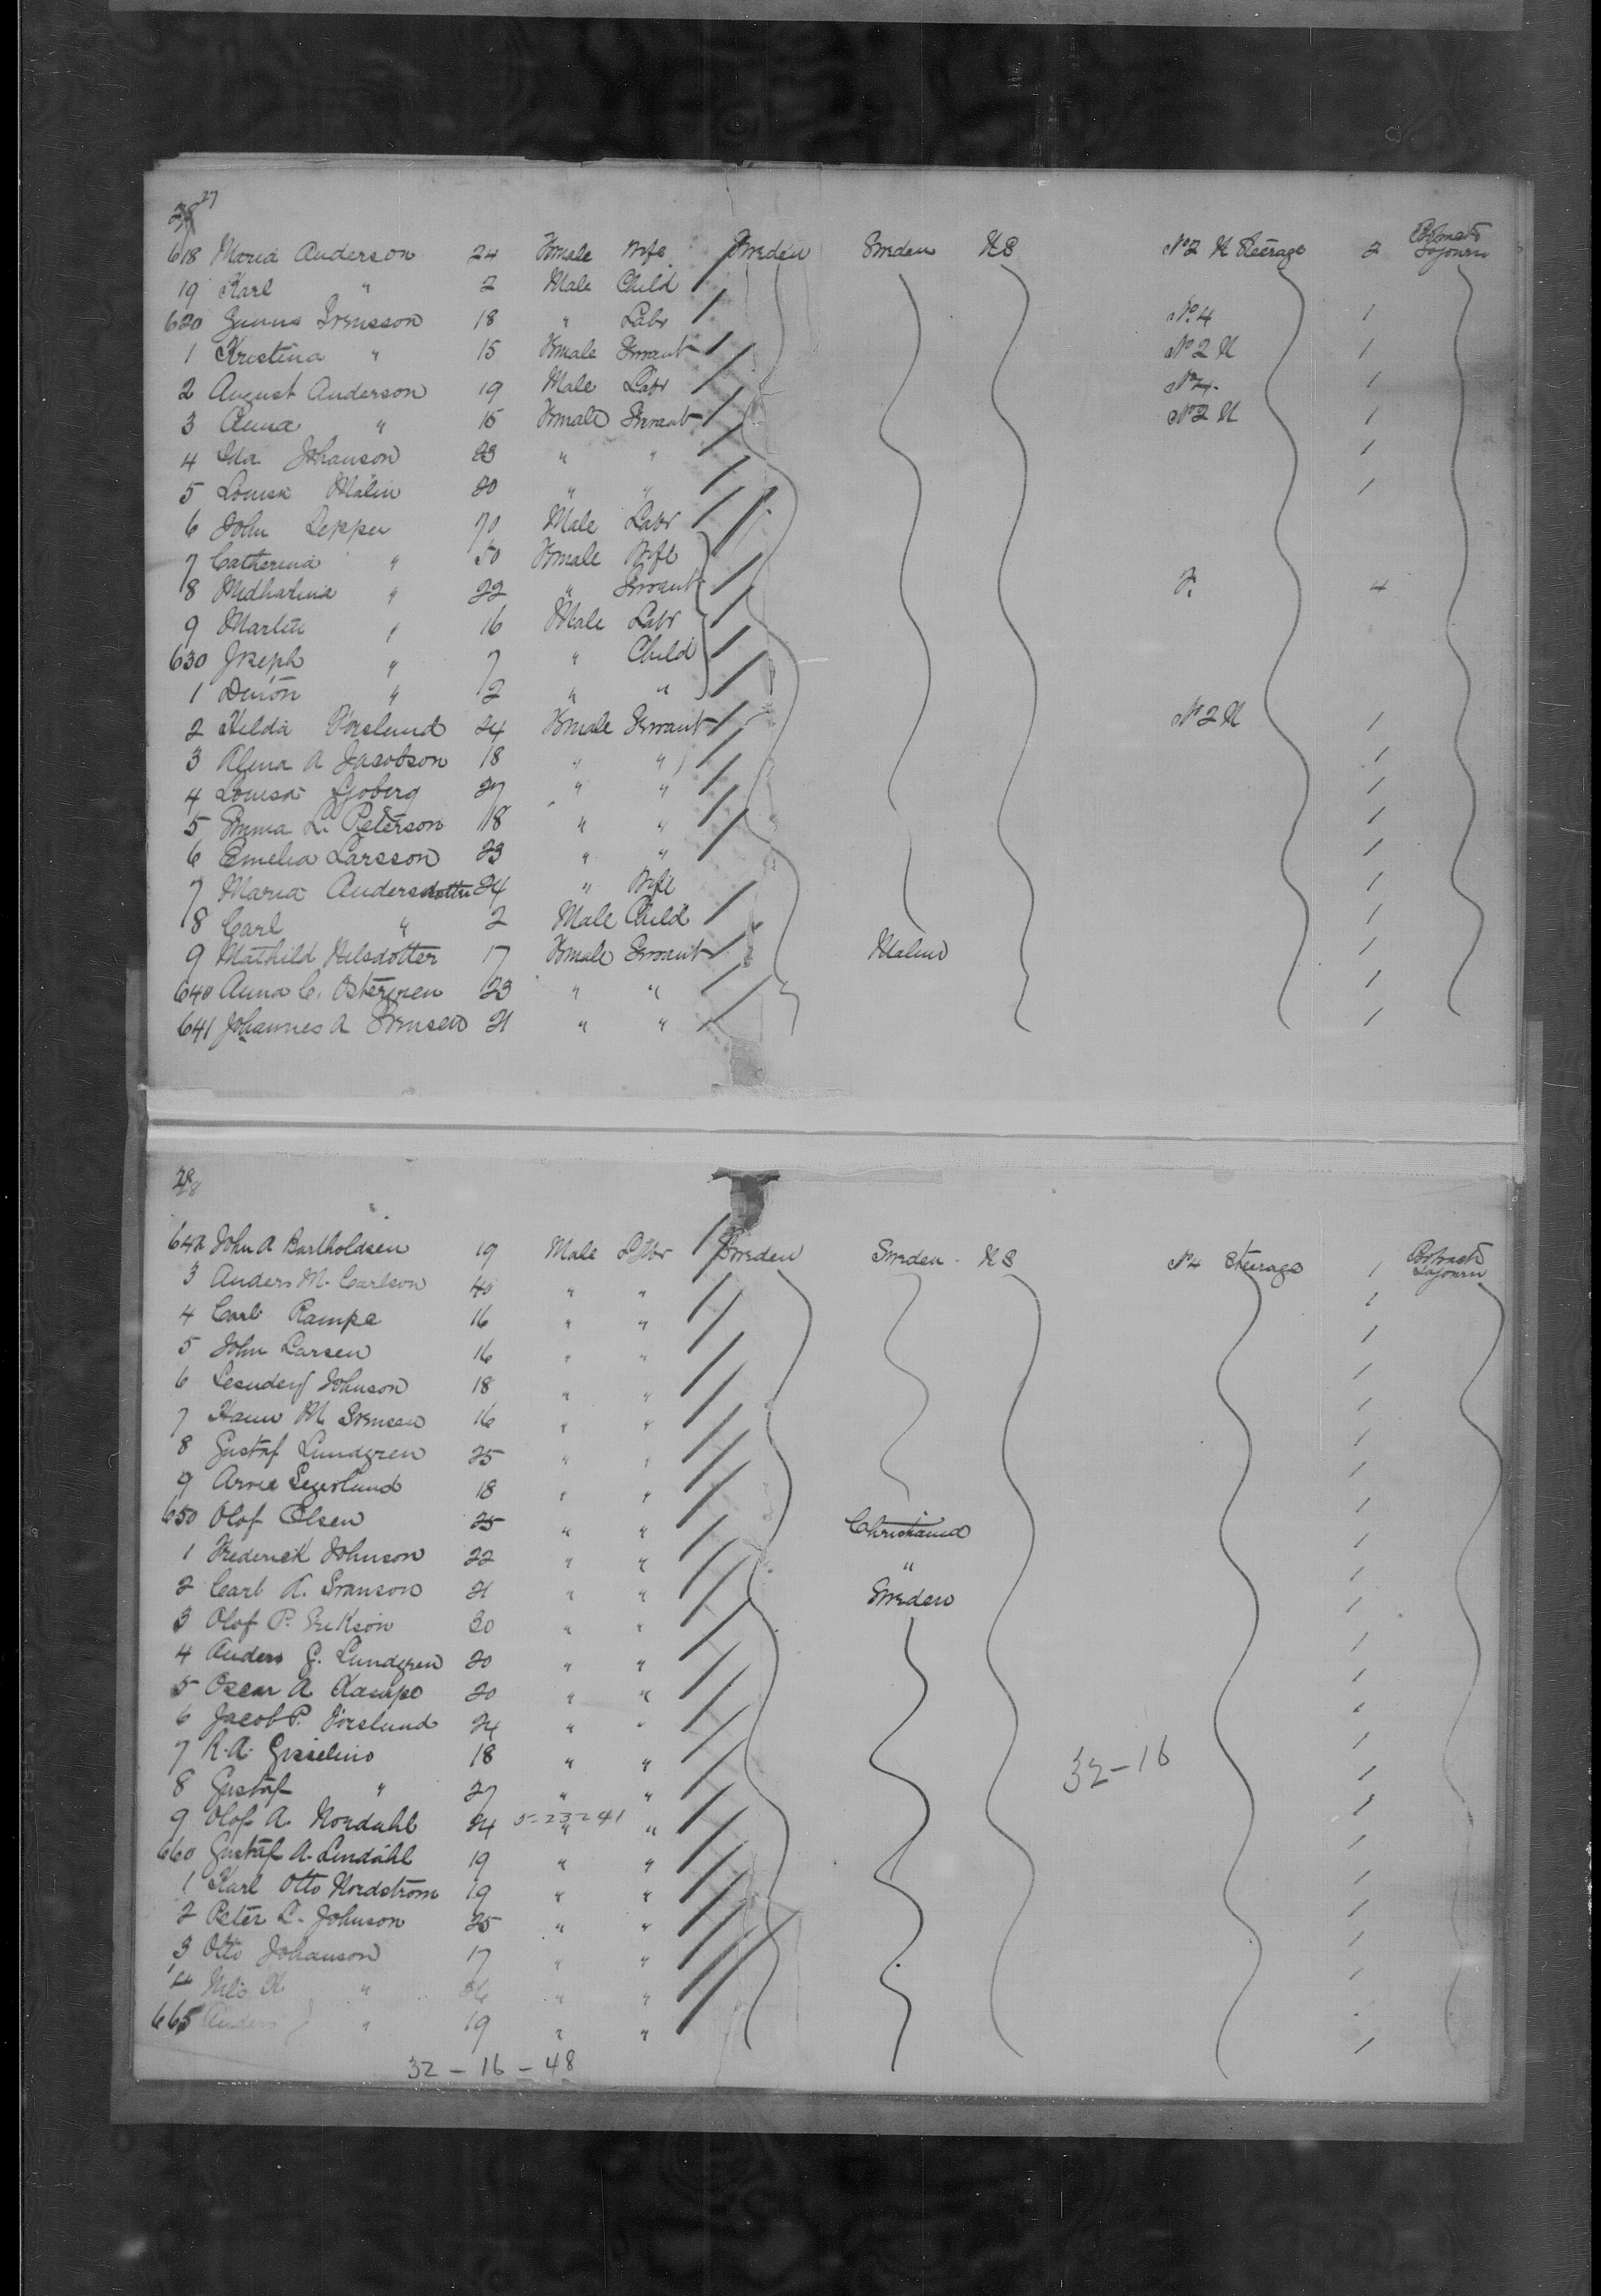 27
618 Maria Anderson 24 Female Wife Sweden Sweden US No 2 U Steerage 2 Protracted Sojourn
19 Karl " 2 Male Child
620 Svensson 18 " Labr No. 4 1
1 Kristina " 15 Female Servant No 2 U 1
2 August Anderson 19 Male Labr No 4 1
3 Anna " 15 Female Servant No 2 U 1
4 Ida Johanson 23 " " 1
5 Louisa Malin 20 " " 1
6 John 70 Male Labr
7 Catherina " 50 Female Wife
8 " 22 " Servant 4
9 Martin " 16 Male Labr
630 Joseph " 7 " Child
1 " 2 " "
2 Hilda 24 Female Servant No 2 U 1
3 A Jacobson 18 " " 1
4 Louisa Sjoberg 27 " " 1
5 Emma L. Peterson 18 " " 1
6 Emelia Larsson 23 " " 1
7 Maria Andersdotter 24 " Wife 1
8 Carl " 2 Male Child 1
9 Mathild Nelsdotter 17 Female Servant Malmo 1
640 Anna C. 23 " " 1
641 Johannes A Svensen 21 " " 1
28
642 John A Bartholdsen 19 Male Labr Sweden Sweden US No 4 Steerage 1 Protracted Sojourn
3 Anders M. Carlson 40 " " 1
4 Carl Rampe 16 " " 1
5 John Larsen 16 " " 1
6 Johnson 18 " " 1
7 M. Svensen 16 " " 1
8 Gustaf Lundgren 25 " " 1
9 18 " " 1
650 Olof Olsen 25 " " Christiania 1
1 Frederick Johnson 22 " " " 1
2 Carl A. Swanson 21 " " Sweden 1
3 Olof P. Erikson 30 " " 1
4 Anders G. Lundgren 20 " " 1
5 Oscar A 20 " " 1
6 Jacob P. 24 " " 1
7 R. A. 18 " " 32-16 1
8 Gustaf " 27 " " 1
9 Olof A. Nordahl 24 5-23-241 " " 1
660 Gustaf A. Lindahl 19 " " 1
1 Karl Otto Nordstrom 19 " " 1
2 Peter L. Johnson 25 " " 1
3 Otto Johanson 17 " " 1
4 " " " 1
665 Anders " 19 " " 1
32 - 16 - 48